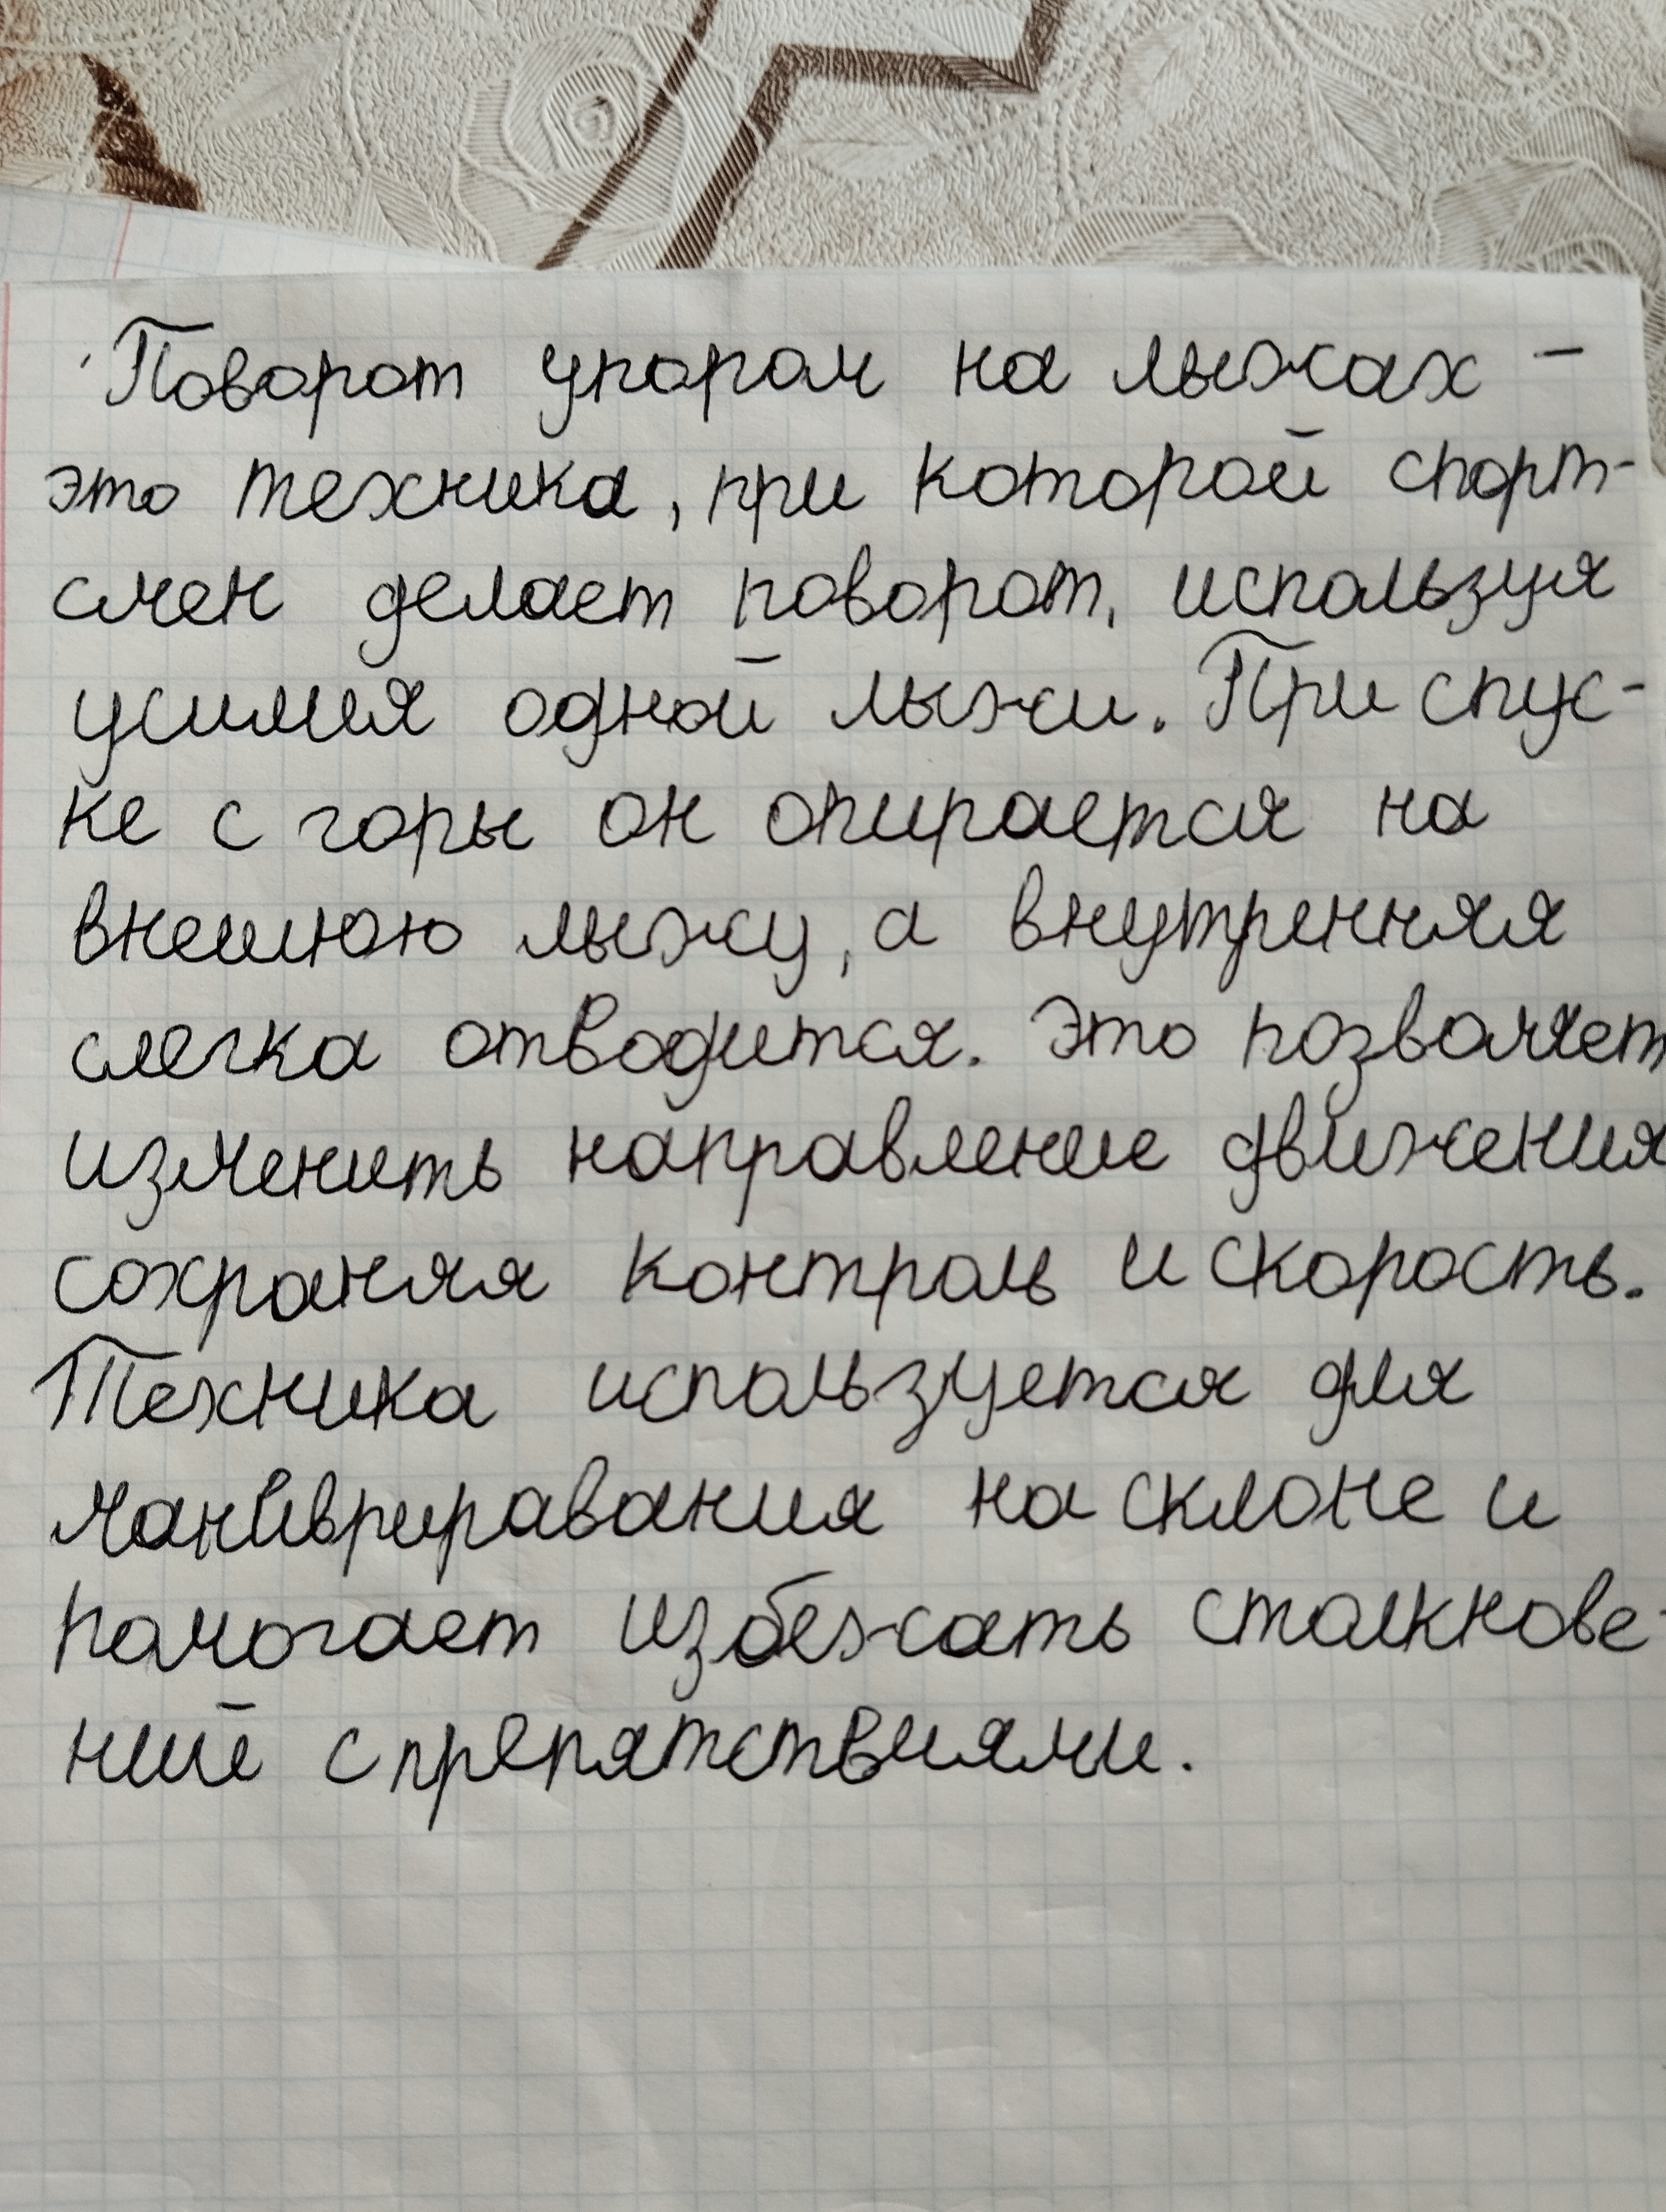 Поворот упором на лыжах -
это техника, при которой спорт-
смен делает поворот, используя
усилия одной лыжи. При спус-
ке с горы он опирается на
внешнюю лыжу, а внутренняя
слегка отводится. Это позволяет
изменить направление движения
сохраняя контроль и скорость.
Техника используется для
манивриравания на склоне и
помогает избежать столкнове-
ний с препятствиями.